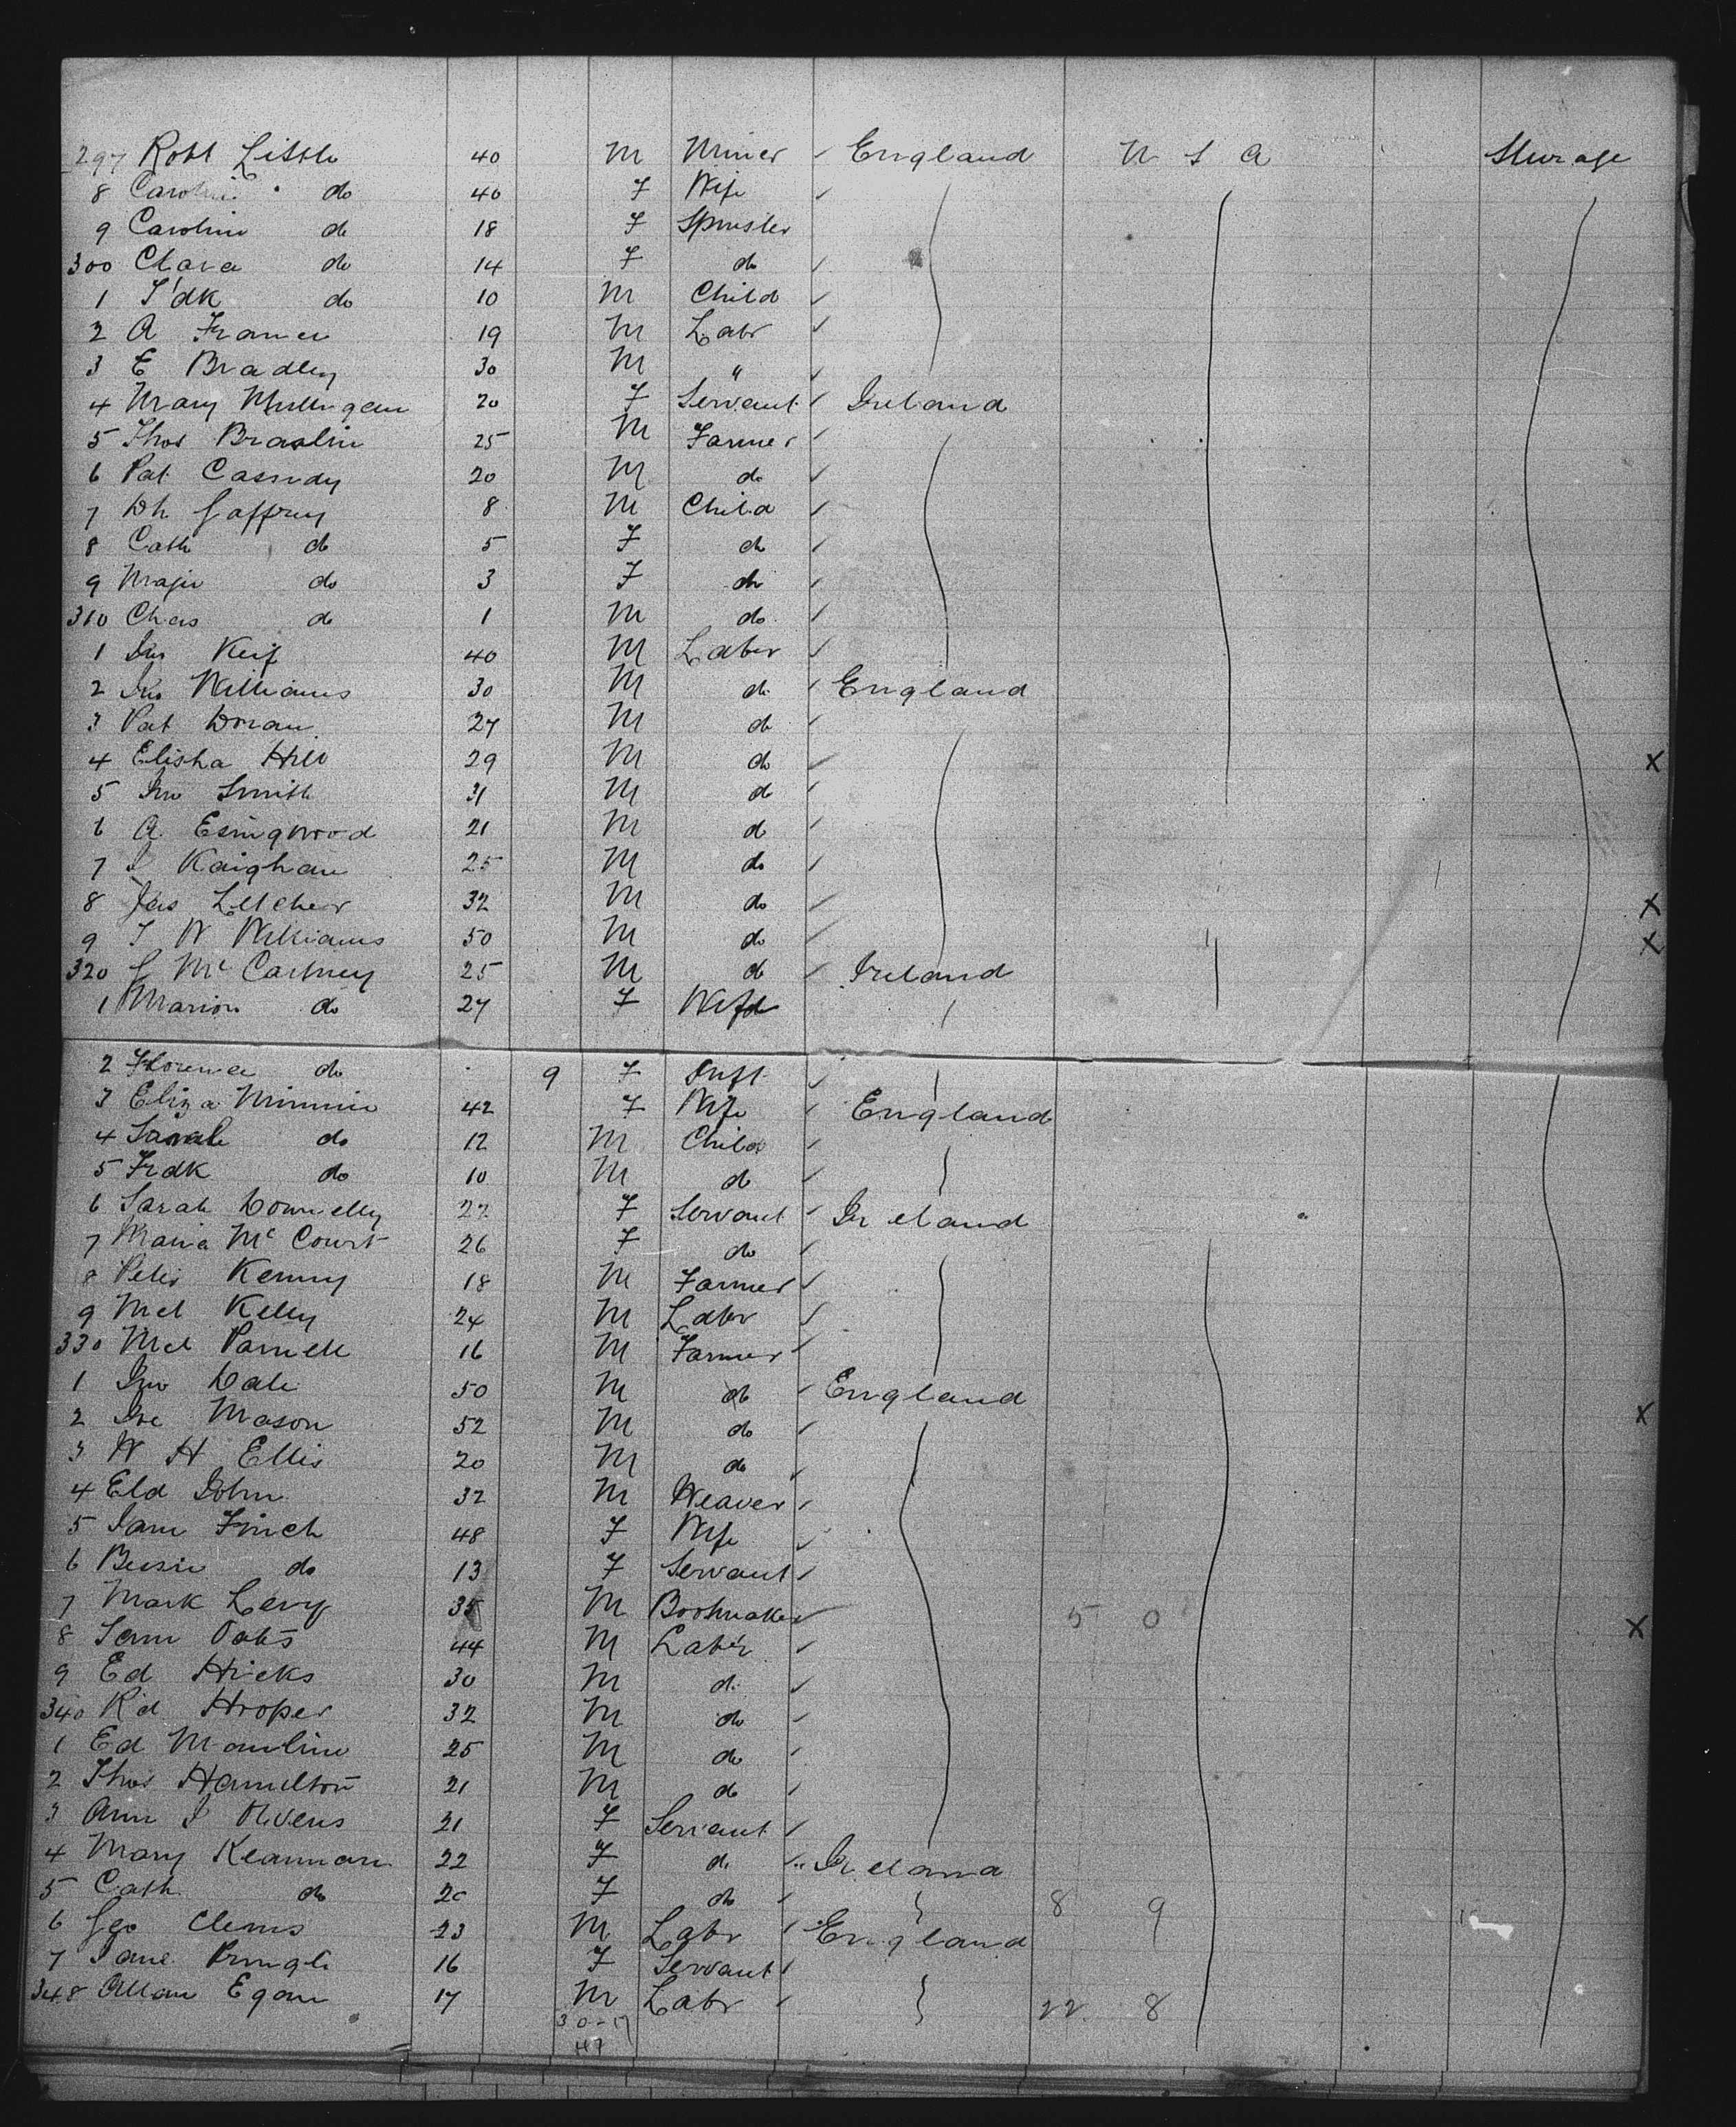 297 Robt Little 40 M Miner England U S A Steerage
8 Caroline do 40 F Wife
9 Caroline do 18 F Spinster
300 Clara do 14 F do
1 F'dk do 10 M Child
2 A France 19 M Labr
3 E Bradley 30 M "
4 Mary Mulligan 20 F Servant Ireland
5 Thos Braslin 25 M Farmer
6 Pat Cassidy 20 M do
7 Gaffney 8 M Child
8 Cath do 5 F do
9 do 3 F do
310 Chas do 1 M do
1 Jno Keif 40 M Labr
2 Jno Williams 30 M do England
3 Pat Doran 27 M do
4 Elisha Hill 29 M do X
5 Jno Smith 31 M do
6 A. Esingwood 21 M do
7 J Kaighan 25 M do
8 Jas Letcher 32 M do X
9 J W Williams 50 M do X
320 J McCartney 25 M do Ireland
1 Marion do 27 F Wife
2 Florence do 9 F Inft
3 Eliza Mimmie 42 F Wife England
4 Sarah do 12 M Child
5 Frdk do 10 M do
6 Sarah Donnelly 22 F Servant Ireland
7 Maria McCourt 26 F do
8 Peter Kenny 18 M Farmer
9 Mcl Kelly 24 M Labr
330 Mcl Parnell 16 M Farmer
1 Jno Dale 50 M do England
2 Mason 52 M do X
3 W H Ellis 20 M do
4 Eld John 32 M Weaver
5 Jane Finch 48 F Wife
6 Bessie do 13 F Servant
7 Mark Levy 35 M Bootmaker 5 0
8 Sam Oats 44 M Lab'r X
9 Ed Hicks 30 M do
340 R'd Hooper 32 M do
1 Ed Mantino 25 M do
2 Thos Hamilton 21 M do
3 Ann J Owens 21 F Servant
4 Mary Keannan 22 F do Ireland
5 Cath do 20 F do 8 9
6 Geo Clems 23 M Labr England
7 Jane Pringle 16 F Servant
348 Allan Egan 17 M Labr 22 8
30-17
47